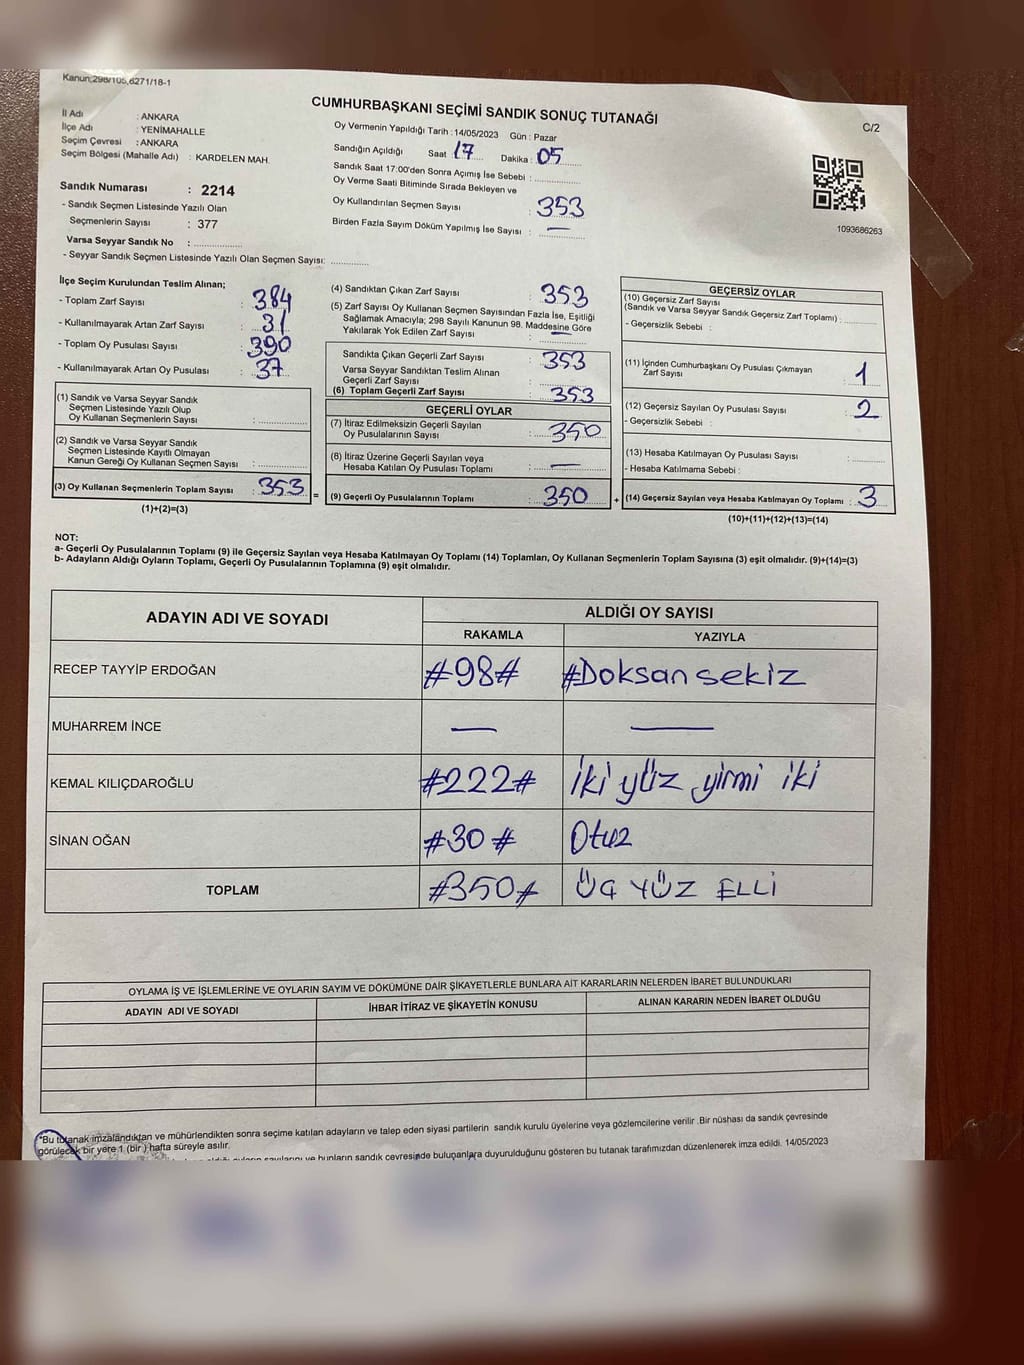 Kanun;298/105,6271/18-1
CUMHURBAŞKANI SEÇİMİ SANDIK SONUÇ TUTANAĞI
C/2
İl Adı : ANKARA
İlçe Adı : YENİMAHALLE
Seçim Çevresi : ANKARA
Seçim Bölgesi (Mahalle Adı) : KARDELEN MAH.
Sandık Numarası : 2214
- Sandık Seçmen Listesinde Yazılı Olan
Seçmenlerin Sayısı : 377
Varsa Seyyar Sandık No : ...............
- Seyyar Sandık Seçmen Listesinde Yazılı Olan Seçmen Sayısı: ............
Oy Vermenin Yapıldığı Tarih : 14/05/2023 Gün : Pazar
Sandığın Açıldığı Saat 17 Dakika : 05
Sandık Saat 17:00'den Sonra Açımış İse Sebebi : ...............
Oy Verme Saati Bitiminde Sırada Bekleyen ve
Oy Kullandırılan Seçmen Sayısı : 353
Birden Fazla Sayım Döküm Yapılmış İse Sayısı : —
1093686263
İlçe Seçim Kurulundan Teslim Alınan;
- Toplam Zarf Sayısı : 384
- Kullanılmayarak Artan Zarf Sayısı : 31
- Toplam Oy Pusulası Sayısı : 390
- Kullanılmayarak Artan Oy Pusulası : 37
(1) Sandık ve Varsa Seyyar Sandık
Seçmen Listesinde Yazılı Olup
Oy Kullanan Seçmenlerin Sayısı : ...............
(2) Sandık ve Varsa Seyyar Sandık
Seçmen Listesinde Kayıtlı Olmayan
Kanun Gereği Oy Kullanan Seçmen Sayısı : ...............
(3) Oy Kullanan Seçmenlerin Toplam Sayısı : 353 =
(1)+(2)=(3)
(4) Sandıktan Çıkan Zarf Sayısı : 353
(5) Zarf Sayısı Oy Kullanan Seçmen Sayısından Fazla İse, Eşitliği
Sağlamak Amacıyla; 298 Sayılı Kanunun 98. Maddesine Göre
Yakılarak Yok Edilen Zarf Sayısı : —
Sandıkta Çıkan Geçerli Zarf Sayısı : 353
Varsa Seyyar Sandıktan Teslim Alınan
Geçerli Zarf Sayısı : ...............
(6) Toplam Geçerli Zarf Sayısı : 353
GEÇERLİ OYLAR
(7) İtiraz Edilmeksizin Geçerli Sayılan
Oy Pusulalarının Sayısı : 350
(8) İtiraz Üzerine Geçerli Sayılan veya
Hesaba Katılan Oy Pusulası Toplamı : —
(9) Geçerli Oy Pusulalarının Toplamı : 350 +
GEÇERSİZ OYLAR
(10) Geçersiz Zarf Sayısı
(Sandık ve Varsa Seyyar Sandık Geçersiz Zarf Toplamı) : ............
- Geçersizlik Sebebi :
(11) İçinden Cumhurbaşkanı Oy Pusulası Çıkmayan
Zarf Sayısı : 1
(12) Geçersiz Sayılan Oy Pusulası Sayısı : 2
- Geçersizlik Sebebi :
(13) Hesaba Katılmayan Oy Pusulası Sayısı : ............
- Hesaba Katılmama Sebebi :
(14) Geçersiz Sayılan veya Hesaba Katılmayan Oy Toplamı : 3
(10)+(11)+(12)+(13)=(14)
NOT:
a- Geçerli Oy Pusulalarının Toplamı (9) ile Geçersiz Sayılan veya Hesaba Katılmayan Oy Toplamı (14) Toplamları, Oy Kullanan Seçmenlerin Toplam Sayısına (3) eşit olmalıdır. (9)+(14)=(3)
b- Adayların Aldığı Oyların Toplamı, Geçerli Oy Pusulalarının Toplamına (9) eşit olmalıdır.
ADAYIN ADI VE SOYADI ALDIĞI OY SAYISI
RAKAMLA YAZIYLA
RECEP TAYYİP ERDOĞAN #98# #Doksan sekiz
MUHARREM İNCE — —
KEMAL KILIÇDAROĞLU #222# İki yüz yirmi iki
SİNAN OĞAN #30# Otuz
TOPLAM #350# ÜÇ YÜZ ELLİ
OYLAMA İŞ VE İŞLEMLERİNE VE OYLARIN SAYIM VE DÖKÜMÜNE DAİR ŞİKAYETLERLE BUNLARA AİT KARARLARIN NELERDEN İBARET BULUNDUKLARI
ADAYIN ADI VE SOYADI İHBAR İTİRAZ VE ŞİKAYETİN KONUSU ALINAN KARARIN NEDEN İBARET OLDUĞU
*Bu tutanak imzalandıktan ve mühürlendikten sonra seçime katılan adayların ve talep eden siyasi partilerin sandık kurulu üyelerine veya gözlemcilerine verilir .Bir nüshası da sandık çevresinde
görülecek bir yere 1 (bir) hafta süreyle asılır.
ve bunların sandık çevresinde bulunanlara duyurulduğunu gösteren bu tutanak tarafımızdan düzenlenerek imza edildi. 14/05/2023